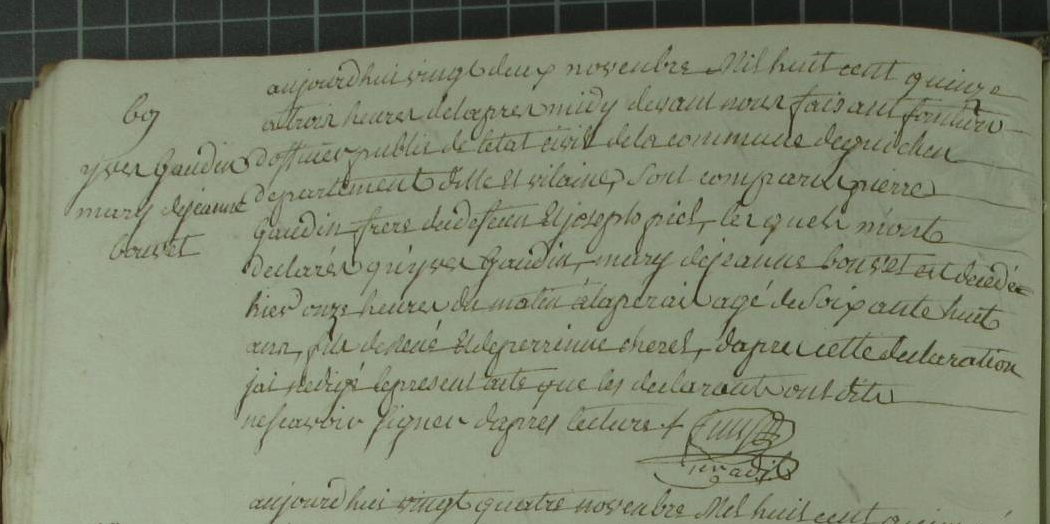 aujourdhui vingt deux novembre Mil huit cent quinze
a trois heures de lapres midy devant nous faisant fonction
60
yves Gaudin
d'officier public de letat civil de la commune de guichen
departement dille Et vilaine, Sont comparu pierre
mary de jeanne
Gaudin frere du defeun Et joseph piel, les quels mont
bouvet
declarés qu'yves Gaudin, mary de jeanne bouvet est décédé
hier onze heures du matin a agé de Soixante huit
ans, fils de René Et de perrinne cherel, dapres cette declaration
jai redigé le present acte que les declarants ont dits
ne scavoir signer dapres lecture
aujourdhui vingt quatre novembre Mil huit cent quinze